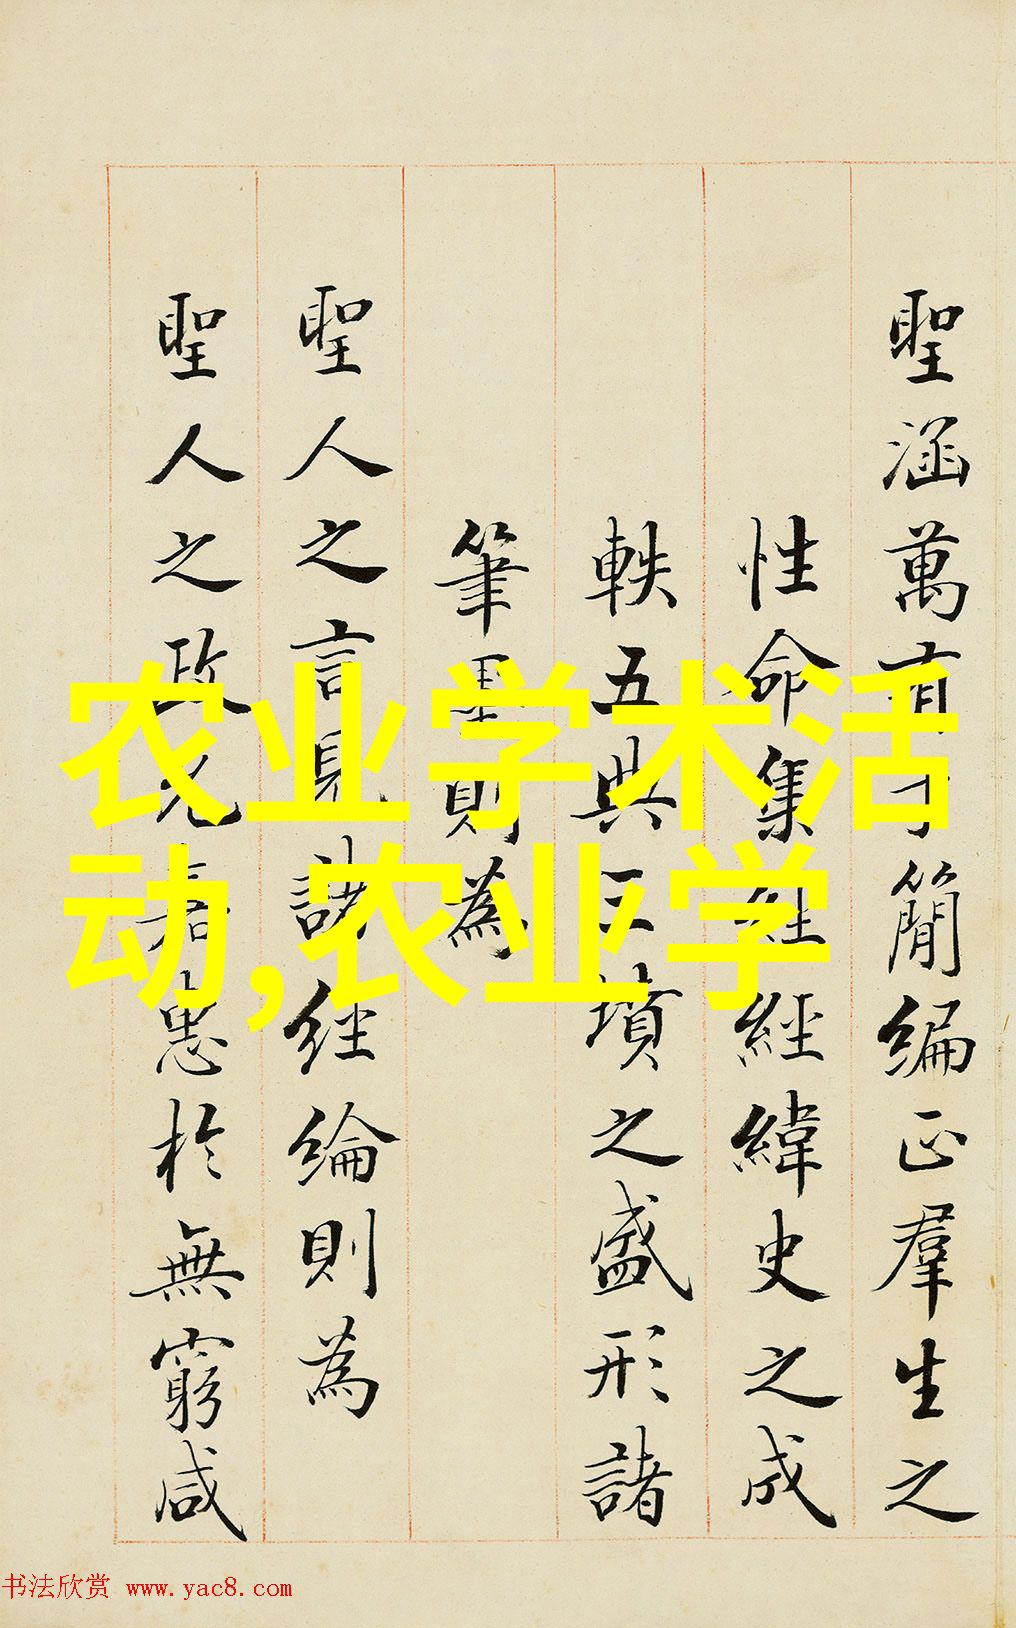 聖涵萬有簡編正羣生之
性命集經緯史之成
軼五典三墳之盛形諸
筆墨則為
聖人之言見諸經綸則為
聖人之政於無窮咸
农业学术活
动,农业学
书法欣赏 www.yac8.com